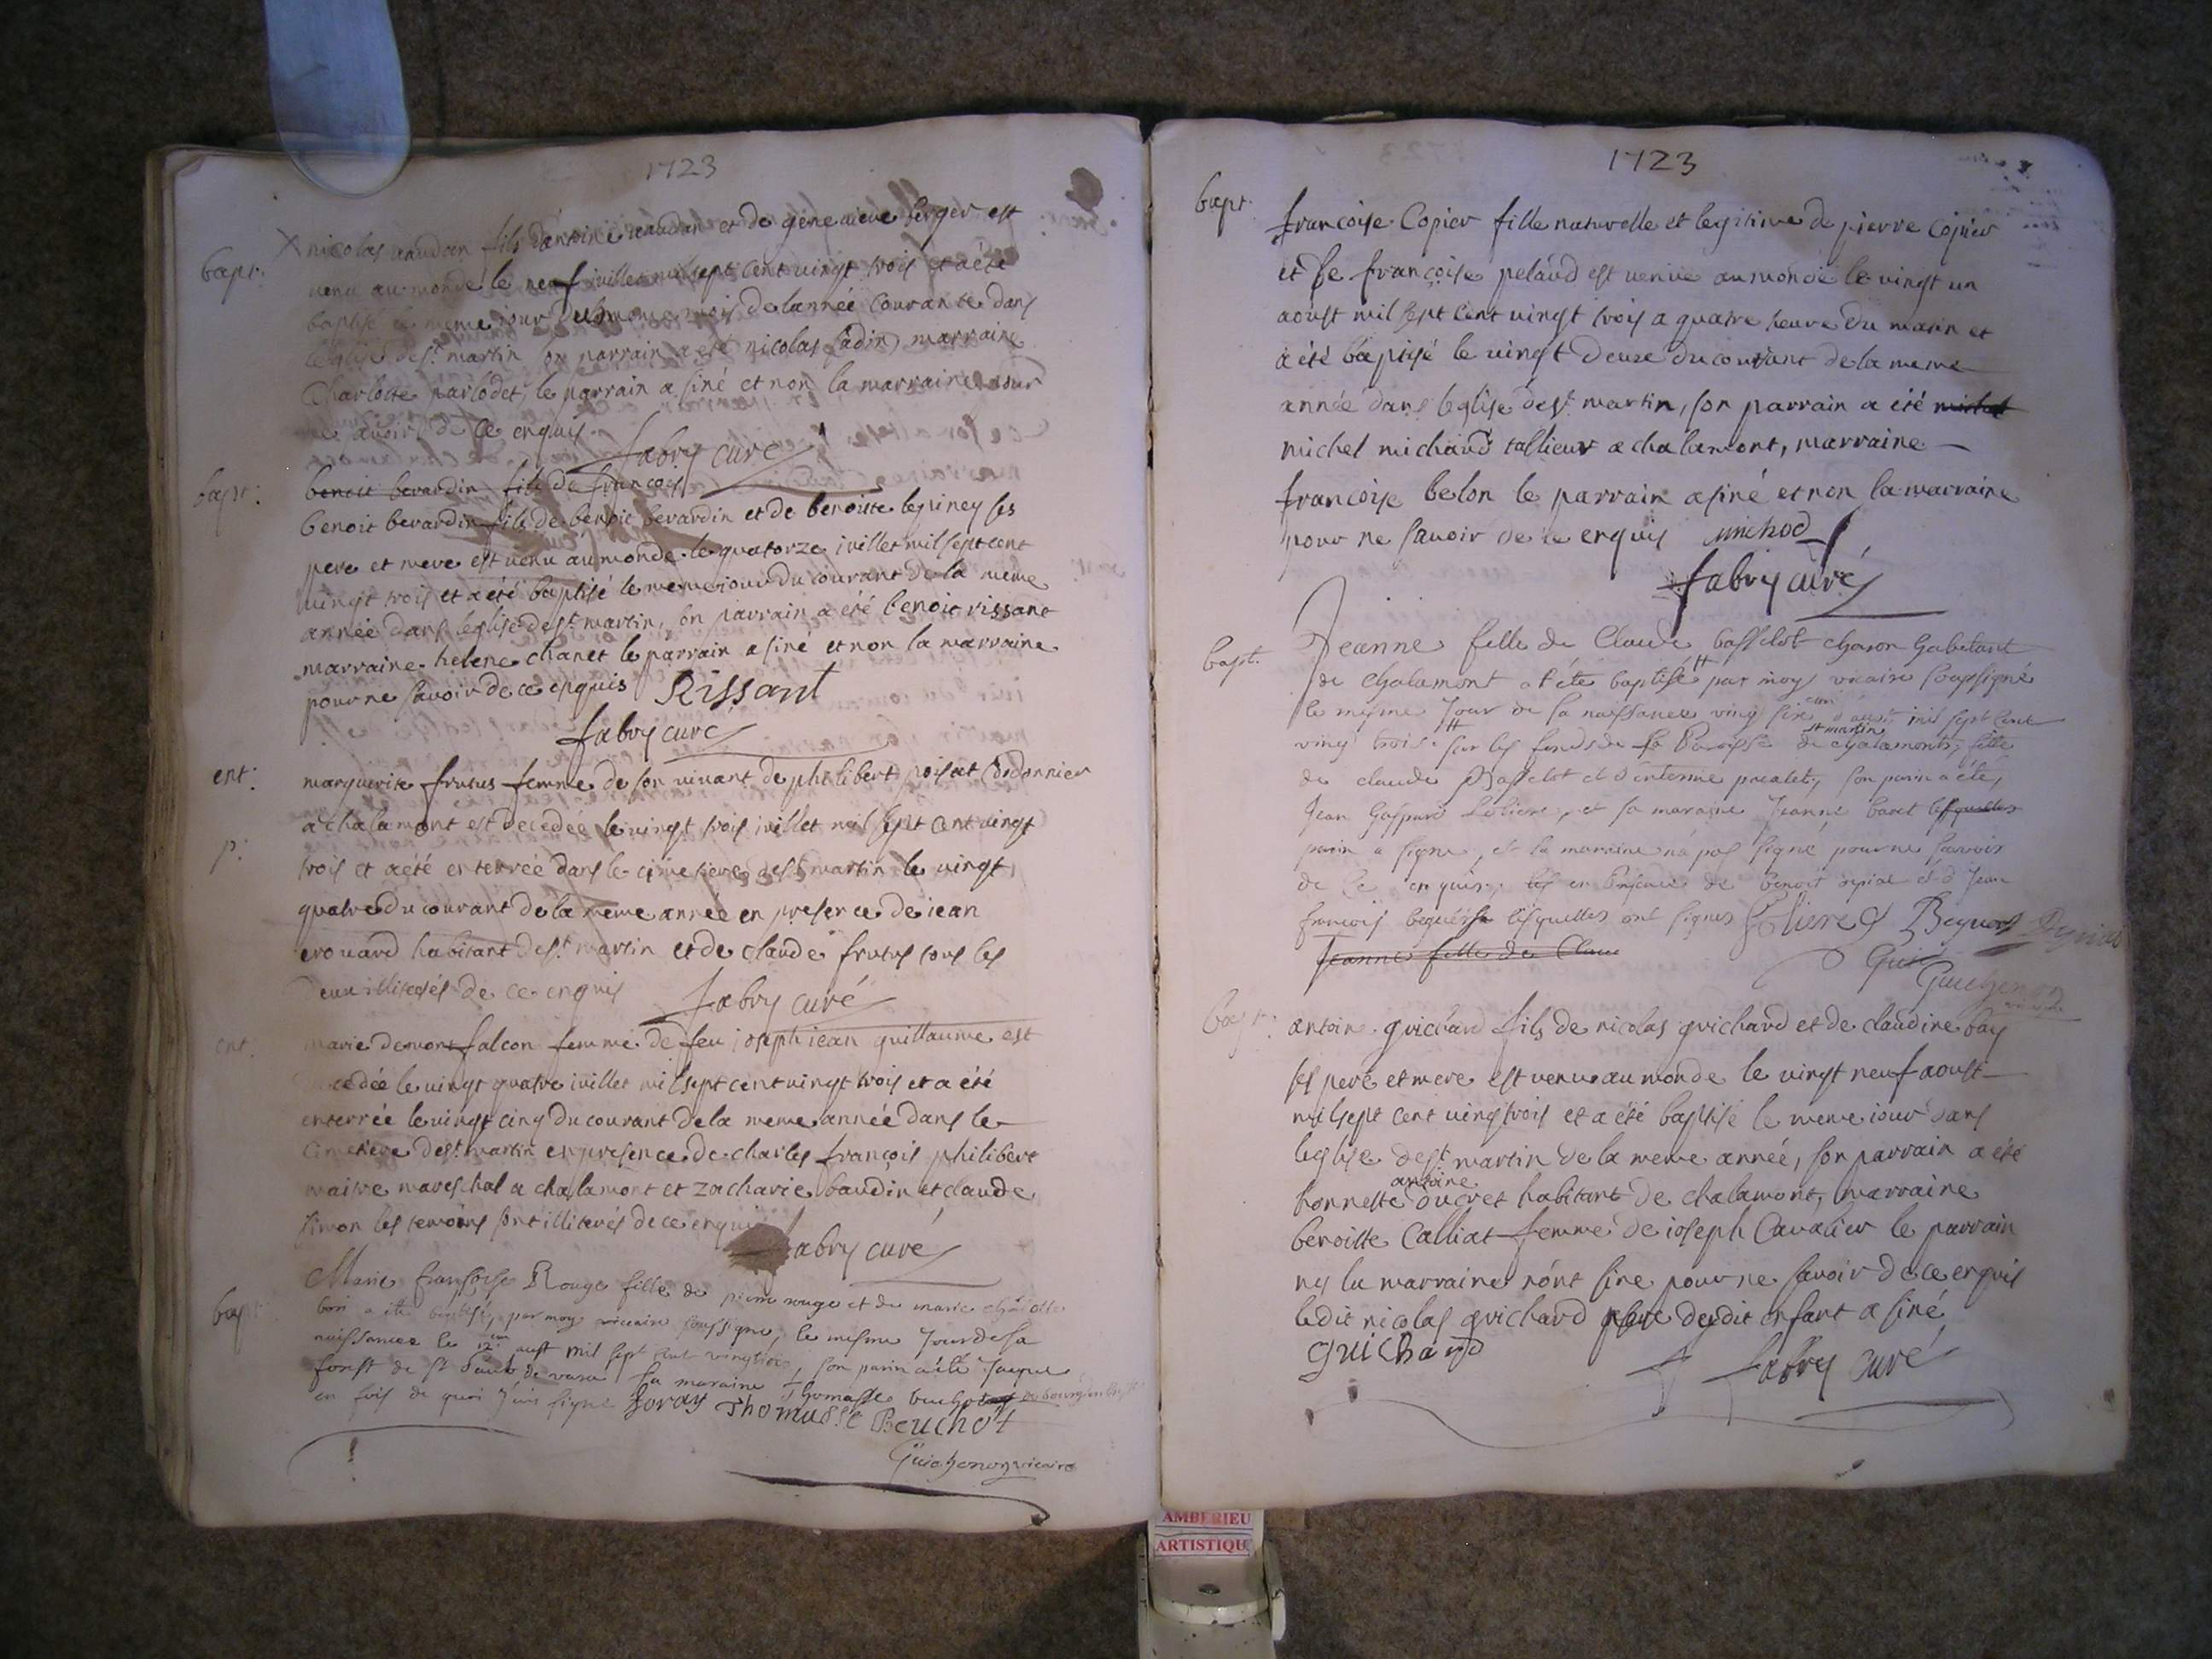 1723
bapt:
nicolas naudan fils d'antoine naudan et de genevieve berger est
venu au monde le neuf juillet mil sept cent vingt trois et a été
baptisé le meme jour du meme mois de lannée courante dans
leglise de st martin son parrain a été nicolas marraine
Charlotte le parrain a siné et non la marraine pour
ne savoir de ce enquis
fabry curé
bapt:
benoit berardin fils de francois
benoit berardin fils de benoit berardin et de benoiste lepiney ses
pere et mere est venu au monde le quatorze juillet mil sept cent
vingt trois et a été baptisé le meme jour du courant de la meme
année dans leglise de st martin, son parrain a été benoit rissant
marraine helene chanet le parrain a siné et non la marraine
pour ne savoir de ce enquis Rissant
fabry curé
ent:
p:
marguerite frutus femme de son vivant de philibert poisat Cordonnier
a chalamont est decedée le vingt trois juillet mil sept cent vingt
trois et a été enterrée dans le cimetiere de st martin le vingt
quatre du courant de la meme année en presence de jean
erouard habitant de st martin et de claude frutus tous les
deux illiterés de ce enquis fabry curé
ent.
marie demontfalcon femme de feu joseph jean guillaume est
decedée le vingt quatre juillet mil sept cent vingt trois et a été
enterrée le vingt cinq du courant de la meme année dans le
Cimetiere de st martin en presence de charles françois philibert
maitre mareschal a chalamont et zacharie baudin et claude
simon les temoins sont illiterés de ce enquis
fabry curé
bapt
Marie françoise Rouge fille de pierre rouge et de marie charlotte
bon a été baptisé, par moy vicaire soussigné, le mesme jour de sa
naissance le 12em aust mil sept cent vingt trois, son parin a été Jaque
forest de st Paul de varax sa maraine Thomasse buchot
en fois de quoi j'ais signe foray Thomasse Beuchot
Guichenon vicaire
1723
bapt.
francoise Copier fille naturelle et legitime de pierre Copier
et de françoise pelaud est venue au monde le vingt un
aoust mil sept cent vingt trois a quatre heure du matin et
a été baptisé le vingt deuze du courant de la meme
année dans leglise de st martin, son parrain a été michel
michel michaud tallieur a chalamont, marraine
francoise belon le parrain a siné et non la marraine
pour ne savoir de ce enquis michod
fabry curé
bapt.
Jeanne fille de Claude basselot charon habitant
de chalamont a été baptisé par moy vicaire soussigné
le mesme Jour de sa naissance ving sixem d'aust mil sept cent
ving trois sur les fonds de la Paroisse st martin de chalamont, fille
de claude Basselot et d'entenne prealet, son parin a été,
Jean Gaspard Loliere, et sa maraine Jeanne baret lesquelles
parin a signe, et la maraine n'a pas signé pour ne savoir
de ce enquis. en presence de benoit et d Jean
francois beguerse lesquelles ont signes Loliere Beguers
Jeanne fille de Claude
Guichenon
bapt:
antoine guichard fils de nicolas guichard et de claudine bay
ses pere et mere est venu au monde le vingt neuf aoust
mil sept cent vingtrois et a été baptisé le meme jour dans
leglise de st martin de la meme année, son parrain a été
honneste antoine ducret habitant de chalamont, marraine
benoitte Calliat femme de joseph Cavalier le parrain
ny la marraine n'ont siné pour ne savoir de ce enquis
le dit nicolas guichard pere dudit enfant a siné
guichard
fabry curé
AMBERIEU
ARTISTIQU